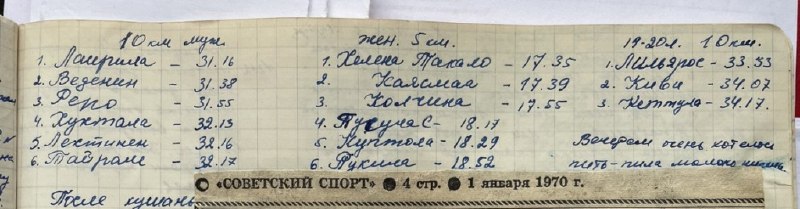 10 км муж.
1. Лаурила - 31.16
2. Веденин - 31.38
3. Репо - 31.55
4. Хухтала - 32.13
5. Лехтинен - 32.16
6. Тайпале - 32.17
После
жен. 5 км.
1. Хелена Такало - 17.35
2. Каясмаа - 17.39
3. Колчина - 17.55
4. - 18.17
5. Куптола - 18.29
6. Рукина - 18.52
19-20л. 10 км.
1. - 33.53
2. Киви - 34.07
3. Кеттула - 34.17.
Вечером очень хотелось
пить - пила молоко
«СОВЕТСКИЙ СПОРТ» ● 4 стр. ● 1 января 1970 г.